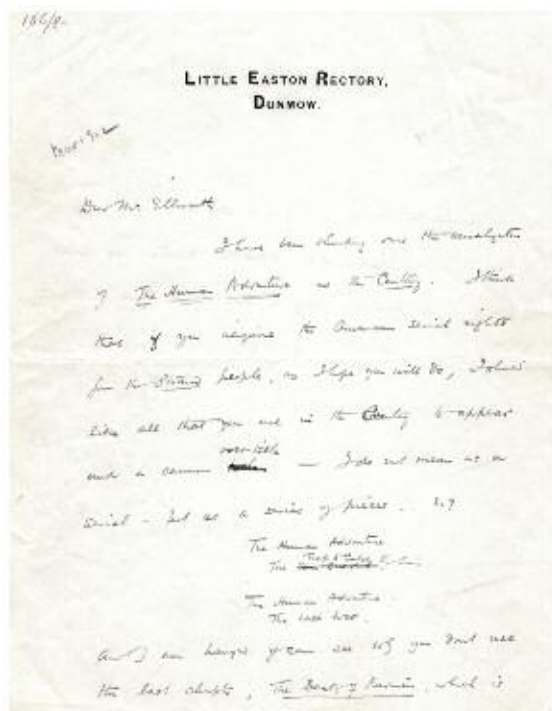 LITTLE EASTON RECTORY,
DUNMOW.
Dear Mr. Ellsworth
I have been thinking over the
of The Human Adventure in the Century. I think
that if you acquire the American serial rights
from the people, as I hope you will do, I should
like all that you use in the Century to appear
under a common — I do not mean as a
serial - but as a series of pieces. E.g
The Human Adventure
The
The Human Adventure.
The Last War.
And I am you can see why you don't use
the last chapter, The of, which is